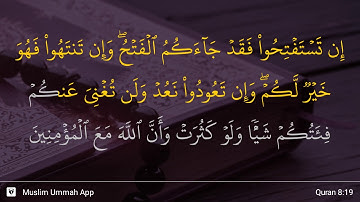 إِن تَسْتَفْتِحُواْ فَقَدْ جَآءَكُمُ ٱلْفَتْحُ ۖ وَإِن تَنتَهُواْ فَهُوَ
خَيْرٌ لَّكُمْ ۖ وَإِن تَعُودُواْ نَعُدْ وَلَن تُغْنِىَ عَنكُمْ
فِئَتُكُمْ شَيْـًٔا وَلَوْ كَثُرَتْ وَأَنَّ ٱللَّهَ مَعَ ٱلْمُؤْمِنِينَ
Muslim Ummah App
Quran 8:19